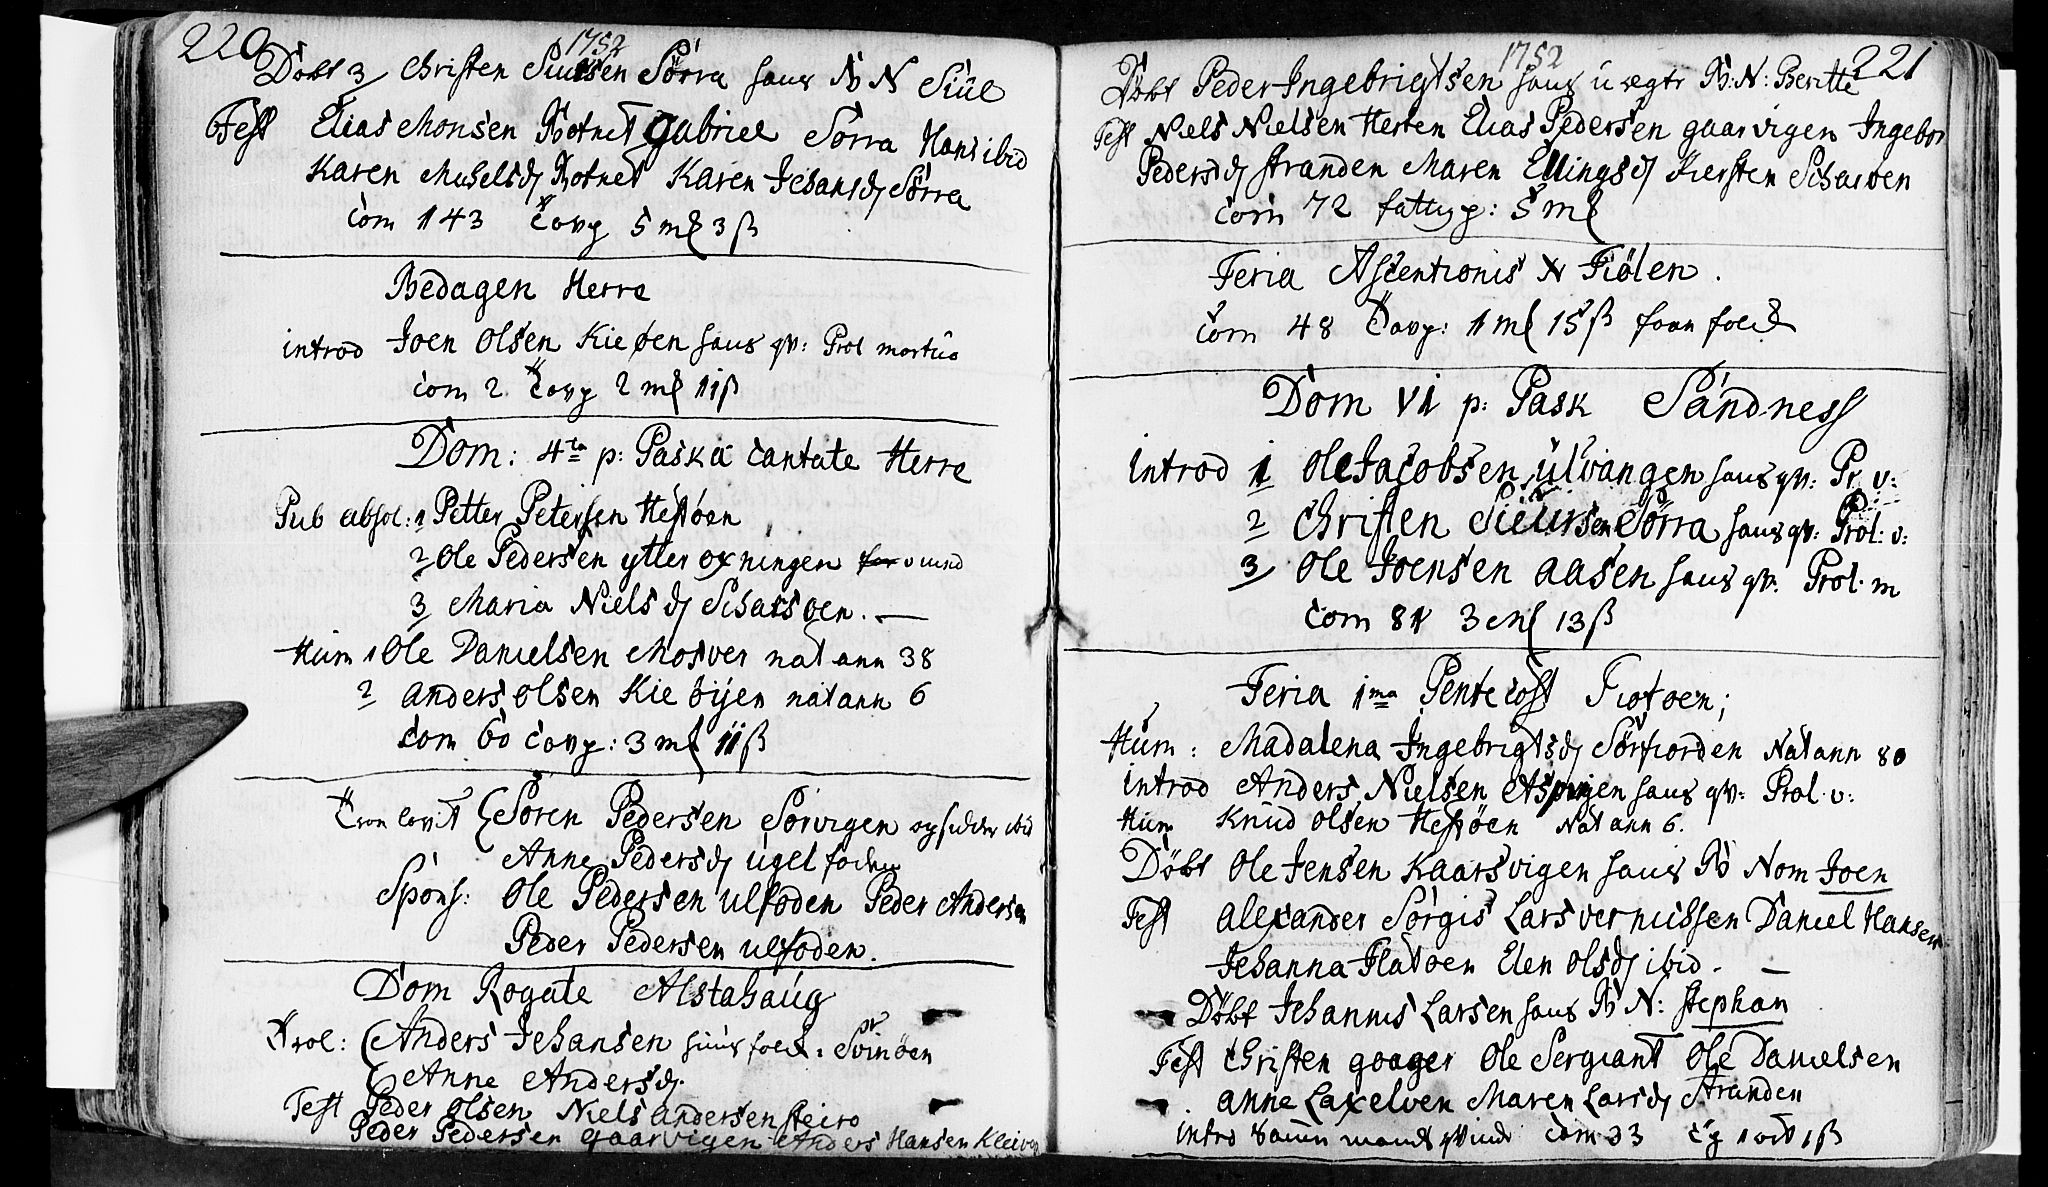 220
1752
Döbt 3 Christen Siursen Sörra haus B N Siül
Test Elias Monsen Botnet Gabriel Sörra Hans ibid
Karen Michelsd Botnet Karen Jehansd Sörra
Com 143 Tavg 5 m 3 ß
Bedagen Herre
introd Joen Olsen Kieøen haus qv: Prol mortuo
Com 2 Tavg 2 m 11 ß
Dom: 4ta p: Paska Cantate Herre
Pub absol: 1 Petter Petersen Hestöen
2 Ole Pedersen ytter oxningen
3 Maria Niels d
Hum 1 Ole Danielsen Mosver nat ann 38
2 Anders Olsen Kieöijen nat ann 6
Com 60 Tavg: 3 m 11 ß
Tron lovit Sören Pedersen Sörvigen opsidder ibid
Anne Pedersd
Spons: Ole Pedersen Ulfoden Peder Andersen
Peder Pedersen Ulfoden.
Dom Rogate Alstahaug
Trol: Anders Jehansen Svinöen
Anne Andersd.
Test Peder Olsen Niels Andersen Steiro
Peder Pedersen gaarvigen Anders Hansen Kleiven
1752
221
Döbt Peder Ingebrigtsen haus u ægte B: N: Beritte
Test Niels Nielsen Herten Elias Pedersen gaarvigen Ingebor
Pedersd Stranden Maren Ellingsd Kiersten
Com 72 fattig p: 5 m
Feria Ascentionis Tiölen.
Com 48 Tavg: 1 m 15 ß
Dom VI p: Pask Sandness
Introd 1 Ole Jacobsen Ulvangen haus qv: Pr v:
2 Christen Siursen Sörra haus qv: Prol: v:
3 Ole Joensen Aasen haus qv: Prol. m
Com 81 3 m 13 ß
Feria 1ma Pentecost Tiötöen;
Hum: Madalena Ingebrigtsd Sörfiorden Nat ann 80
introd Anders Nielsen haus qv: Prol. v:
Hum Knud Olsen Hestöen Nat ann 6.
Döbt Ole Jensen Kaarsvigen haus B Nom Joen
Test Alexander Sörgis Lars vernissen Daniel Hansen
Jehanna Flatöen Elen Olsd ibid.
Döbt Jehannis Larsen haus B N: Stephan
Test Christen Ole Sergiant Ole Danielsen
Anne Laxelven Maren Larsd Stranden
introd Com 33 1 ß